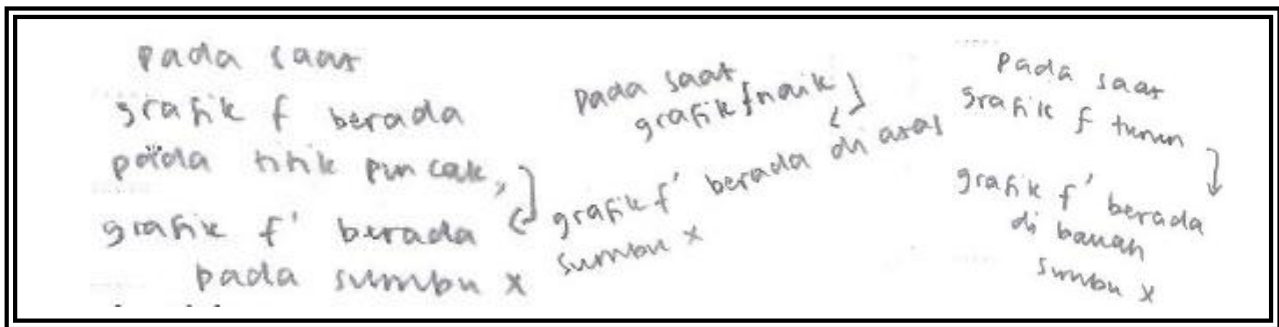 pada saat
grafik f berada
pada titik puncak,
grafik f' berada
pada sumbu x
pada saat
grafik f naik
grafik f' berada di atas
sumbu x
pada saat
grafik f turun
grafik f' berada
di bawah
sumbu x